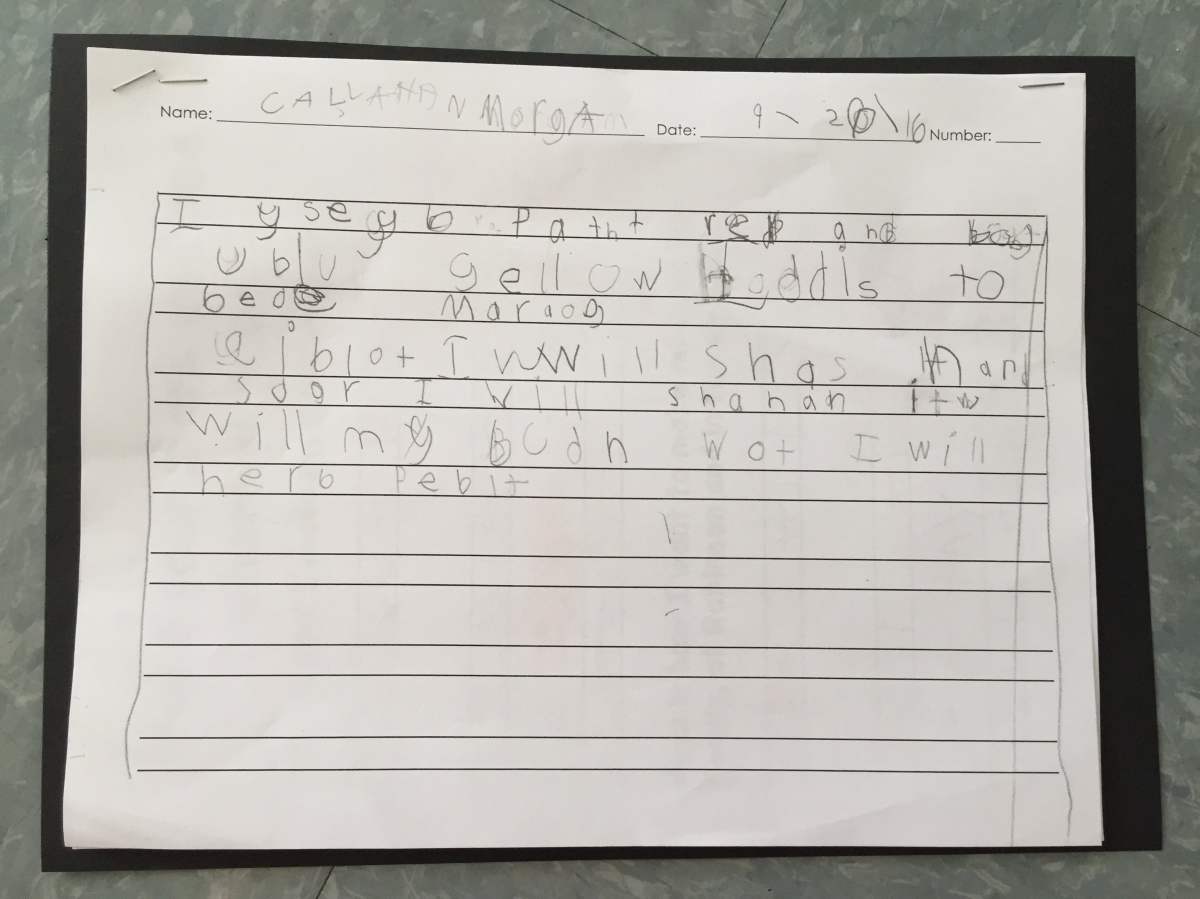 Name: CALLAHAN MorgAn Date: 9-20\16 Number:
I yse yb Patht red and
U blu yellow Hoddls to
bed Maraog
eiblot I will shas Mard
sdor I will shanan itw
will my Budn wot I will
hero Pebit